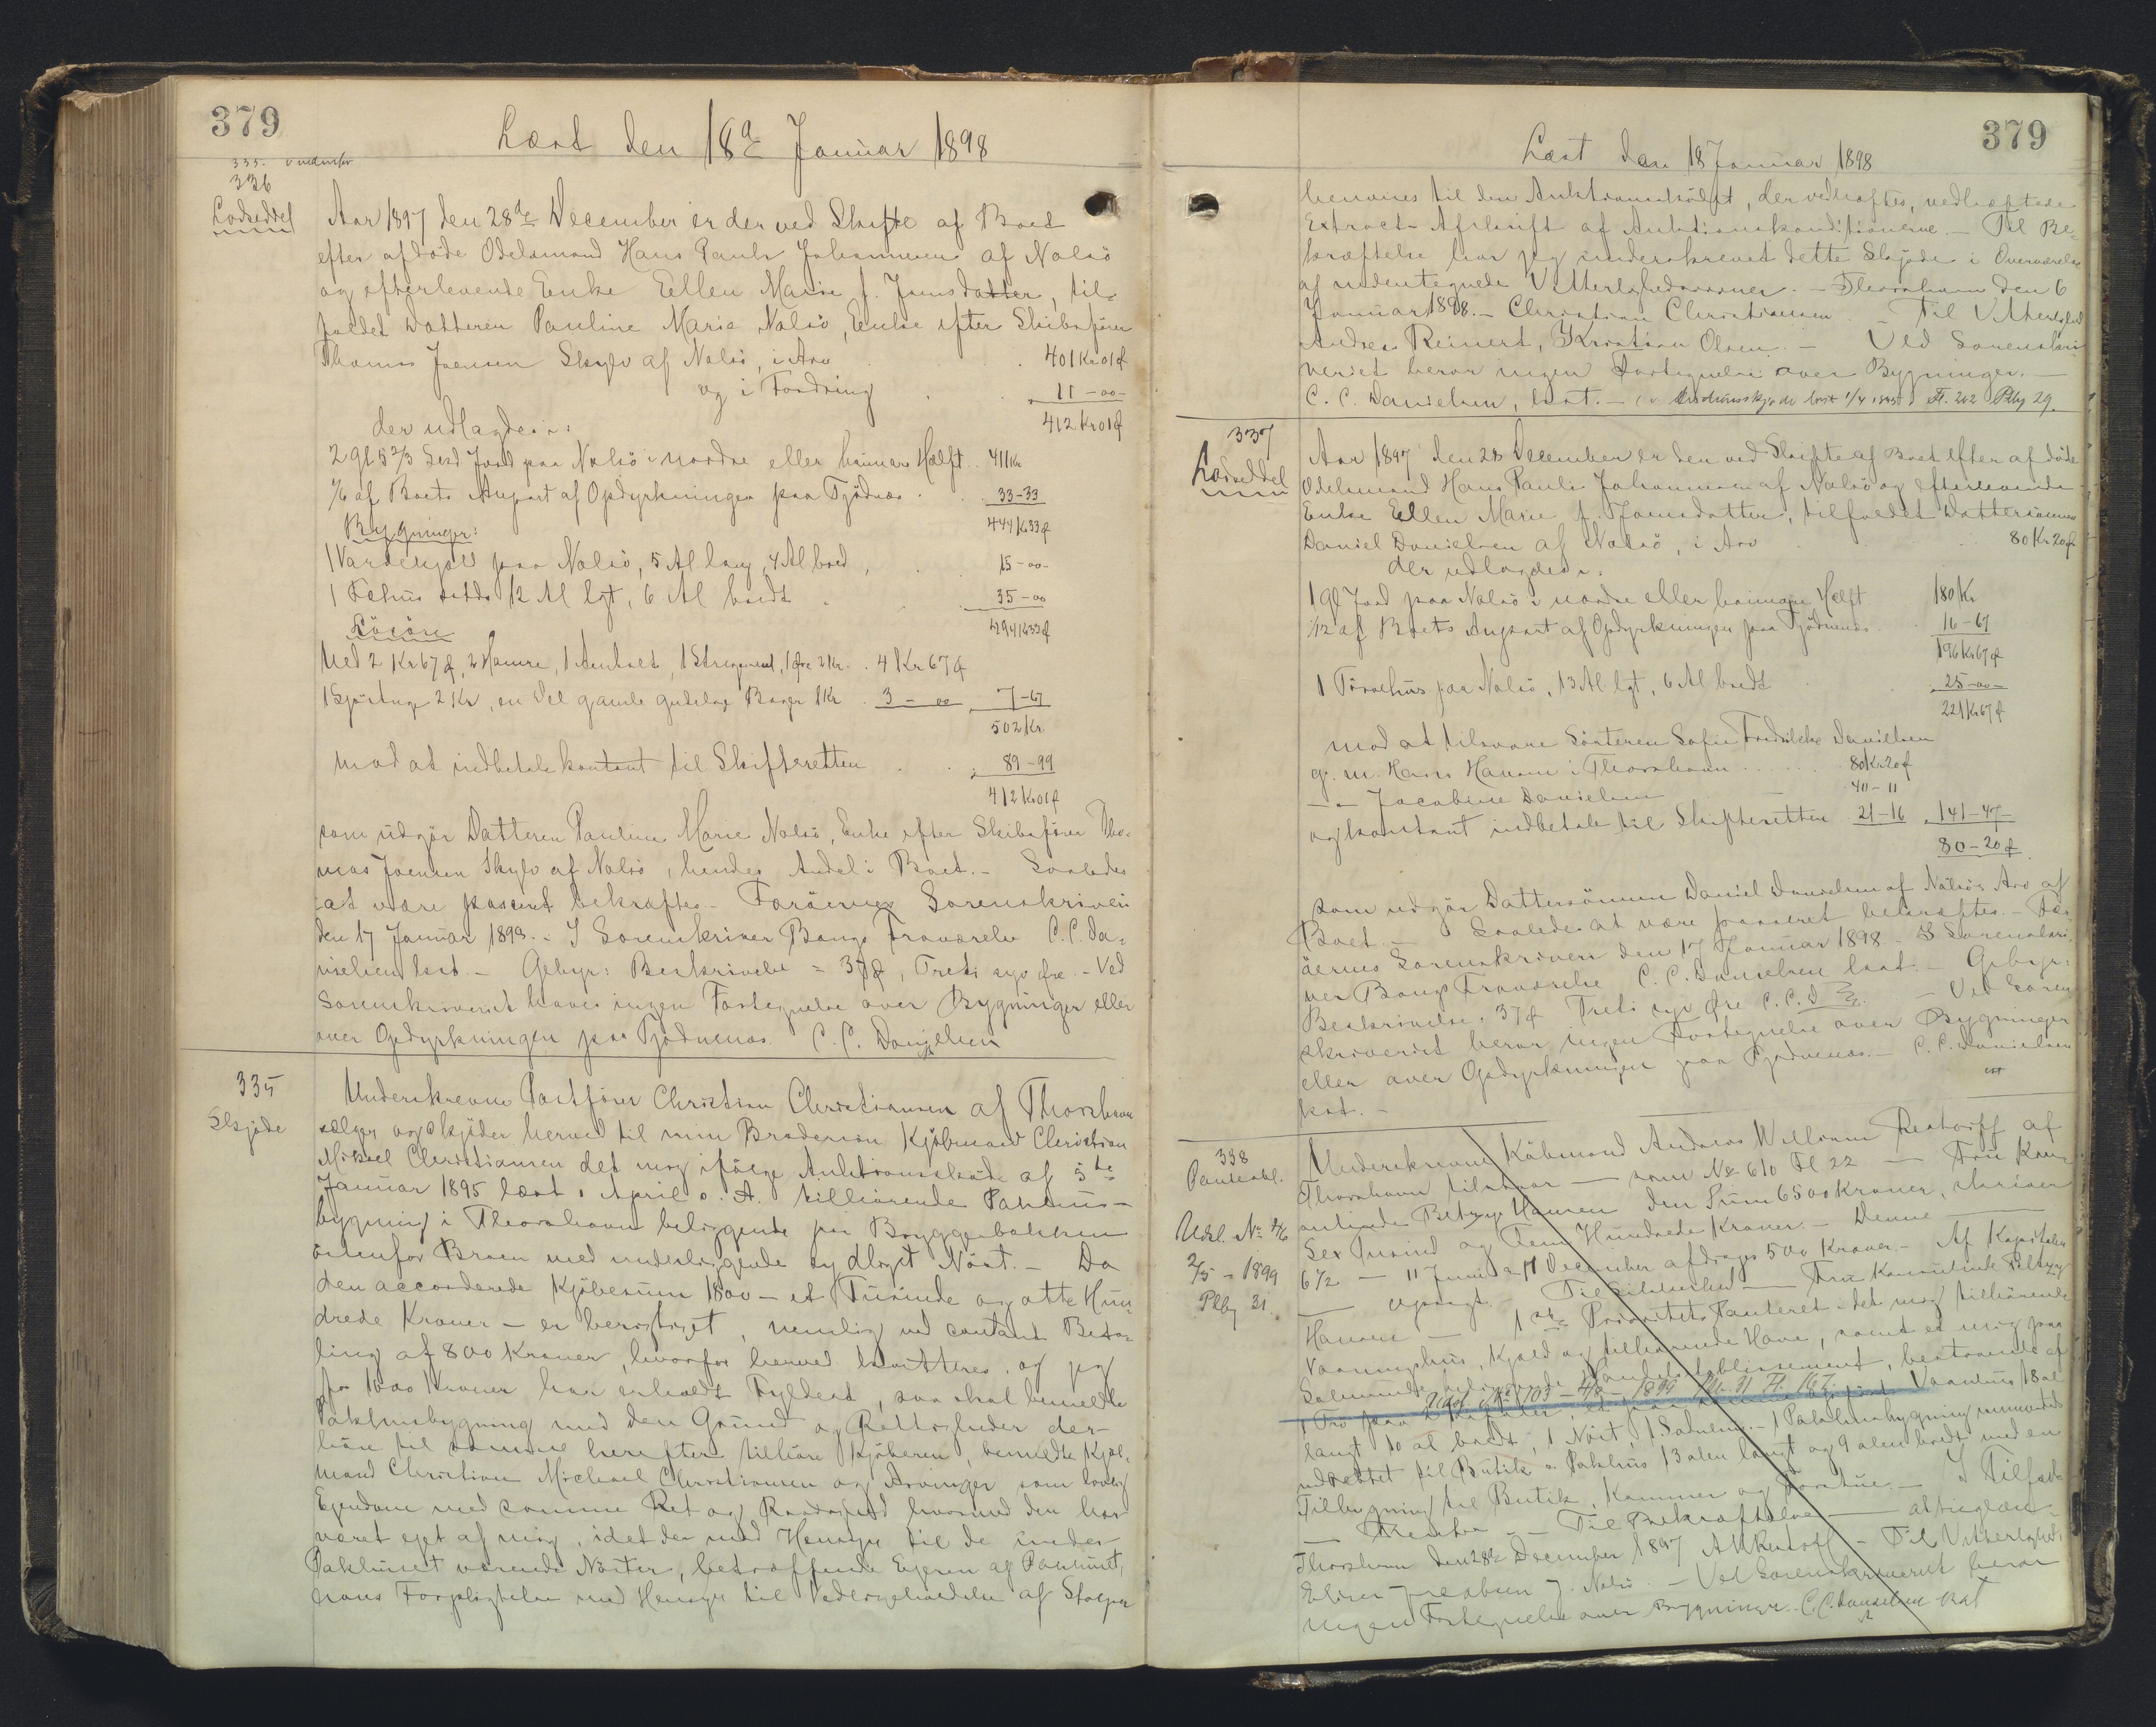 379
Læst den 18de Januar 1898
335. v nedenfor
336
Lodseddel
Aar 1897 den 28de December er der ved Skifte af Boet
efter afdøde Odelsmand Hans Pauli Johannesen af Nolsö
og efterlevende Enke Ellen Marie f. Joensdatter, til-
faldet Datteren Pauline Marie Nolsö, Enke efter Skibsfører
Thomas Joensen Skylv af Nolsö, i Arv 401 Kr 01 ø
og i Fordring 11 - 00 -
der udlagdes: 412 Kr 01 ø
2 gl 5 2/3 Skd Jord paa Nolsö i nordre eller heimare Hælft 411 Kr
1/6 af Boets Anpart af Opdyrkningen paa Tjödnæs 33-33
Bygninger: 444 Kr 33 ø
1 Vardehjall paa Nolsö, 5 Al lang, 4 Al bred, 15-00-
1 Fehus sstds 12 Al lgt, 6 Al bredt 35-00
Løsøre 494 Kr 33 ø
Ved 2 Kr 67 ø, 2 Hamre, 1 Ambolt, 1 øre 2 Kr. 4 Kr 67 ø
1 2 Kr, en Del gamle gudelige Bøger 1 Kr 3 - 00 7-67
502 Kr
mod at indbetale kontant til Skifteretten 89-99
412 Kr 01 ø
som udgör Datteren Pauline Marie Nolsö, Enke efter Skibsfører Tho-
mas Joensen Skylv af Nolsö, hendes Andel i Boet. - Saaledes
at være passeret bekræftes. - Færøernes Sorenskriveri
den 17 Januar 1898. - I Sorenskriver Bangs Fraværelse C. C. Da-
nielsen kst. - Gebyr: Beskrivelse = 37 ø, Treti syv Øre. - Ved
Sorenskriveriet haves ingen Fortegnelse over Bygninger eller
over Opdyrkningen paa Tjödnenæs. C. C. Danielsen
335
Skjøde
Underskrevne Postfører Christian Christiansen af Thorshavn
sælger og skjøder herved til min Brodersön Kjøbmand Christian
Mikael Christiansen det mig ifølge Auktionsskøde af 5te
Januar 1895 læst 1 April s. A. tilhørende Pakhus-
bygning i Thorshavn beliggende paa Bryggebakken
østenfor Broen med underliggende sydligst Nöst. - Da
den accorderede Kjøbesum 1800 - et Tusinde og otte Hun-
drede Kroner - er berigtiget, nemlig ved contant Beta-
ling af 800 Kroner, hvorfor herved kvitteres, og jeg
for 1000 Kroner har erholdt Fyldest, saa skal bemeldte
Pakhusbygning med den Grund og Rettigheder der-
høre til samme herefter tilhøre Kjøberen, bemeldte Kjøb-
mand Christian Michael Christiansen og Arvinger som lovlig
Ejendom med samme Ret og Raadighed hvormed den har
været ejet af mig, idet der med Hensyn til de under
Pakhuset værende Nöster, betræffende Ejeren af Pakhuset,
hans Forpligtelse med Hensyn til Vedligeholdelse af Stolper
379
Læst den 18 Januar 1898
henvises til den Auktionsskødet, der vedhæftes, vedhæftede
Extract-Afskrift af Auktionskonditionerne. - Til Be-
kræftelse har jeg underskrevet dette Skjøde i Overværelse
af undertegnede Vitterlighedsvidner. - Thorshavn den 6
Januar 1898. - Christian Christiansen. - Til Vitterlighed
Andreas Reinert, Kristian Olsen. - Ved Sorenskri-
veriet beror ingen Fortegnelse over Bygninger. -
C. C. Danielsen, kst. - Fl. 202 Pbg 29.
337
Lodseddel
Aar 1897 den 28 December er den ved Skifte af Boet efter afdøde
Odelsmand Hans Pauli Johannesen af Nolsö og efterlevende
Enke Ellen Marie f. Joensdatter, tilfaldet Dattersönnen
Daniel Danielsen af Nolsö, i Arv 80 Kr 20 ø
der udlagdes:
1 Gl Jord paa Nolsö i nordre eller heimare Hælft 180 Kr
1/12 af Boets Anpart af Opdyrkningen paa Tjödnenæs 16-67
196 Kr 67 ø
1 Törvehus paa Nolsö, 13 Al lgt, 6 Al bredt 25-00-
221 Kr 67 ø
mod at tilsvare Sösteren Sofie Fredrikke Danielsen
g. m. Hans Hansen i Thorshavn 80 Kr 20 ø
- " - Jacobine Danielsen 40-11
og kontant indbetale til Skifteretten 21-16 141-47-
80-20 ø
som udgör Dattersönnen Daniel Danielsen af Nolsös Arv af
Boet. - Saaledes at være passeret bekræftes. - Fær-
øernes Sorenskriveri den 17 Januar 1898. I Sorenskri-
ver Bangs Fraværelse C. C. Danielsen kst. - Gebyr:
Beskrivelse: 37 ø Treti syv Øre C. C. D. - Ved Soren-
skriveriet beror ingen Fortegnelse over Bygninger
eller over Opdyrkningen paa Tjødnenæs. - C. C. Danielsen
kst. -
338
Panteobl.
Udsl. No
2/5 - 1899
Pbg 31.
Underskrevne Købmand Andreas William Restorff af
Thorshavn tilstaar - som No 610 Fl. 22 - Fru Kon-
sulinde Betzy Hansen den Sum 6500 Kroner, skriver
Sex Tusind og Fem Hundrede Kroner. - Denne
6 1/2 - 11 Juni & 11 December afdrages 500 Kroner. - Af Kapitalen
- opsagt. Til Sikkerhed - Fru Konsulinde Betzy
Hansen - 1ste Prioritets Panteret i det mig tilhørende
Vaaningshus, Kjæld og tilhørende Have, samt et mig paa
Solmunde beliggende Handelsetablissement, bestaaende af
Udsl. No 103 - 4/8 - 1899 Pbg. 31 Fl. 167.
1 Tro paa Vaanhus 18 al
langt 10 al bredt, 1 Nöst, 1 - 1 Pakhusbygning
indrettet til Butik & Pakhus 13 alen langt og 9 alen bredt med en
Tilbygning til Butik, Kammer og Forstue. - I Tilfælde
- - Til Bekræftelse -
Thorshavn den 28de December 1897 A W Restorff - Til Vitterlighed:
Jacobsen J. Nolsö. - Ved Sorenskriveriet beror
ingen Fortegnelse over Bygninger. C. C. Danielsen kst